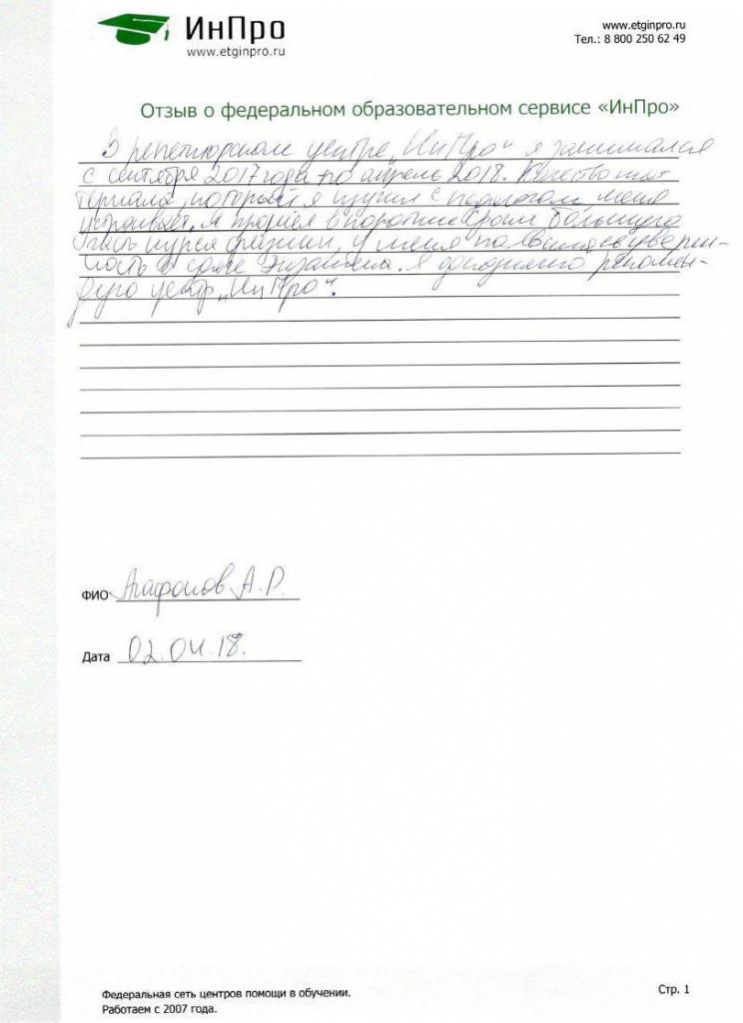 ИнПро
www.etginpro.ru
www.etginpro.ru
Тел.: 8 800 250 62 49
Отзыв о федеральном образовательном сервисе «ИнПро»
В репетиторском центре „ИнПро“ я занимался
с сентября 2017 года по апрель 2018. Качество ма-
териала, который я изучил с педагогом меня
устраивает. Я прошел в короткие сроки большую
часть курса физики, у меня появилась уверен-
ность в сдаче экзамена. Я однозначно рекомен-
дую центр „ИнПро“.
ФИО Агафонов А.Р.
Дата 02.04.18.
Федеральная сеть центров помощи в обучении.
Работаем с 2007 года.
Стр. 1